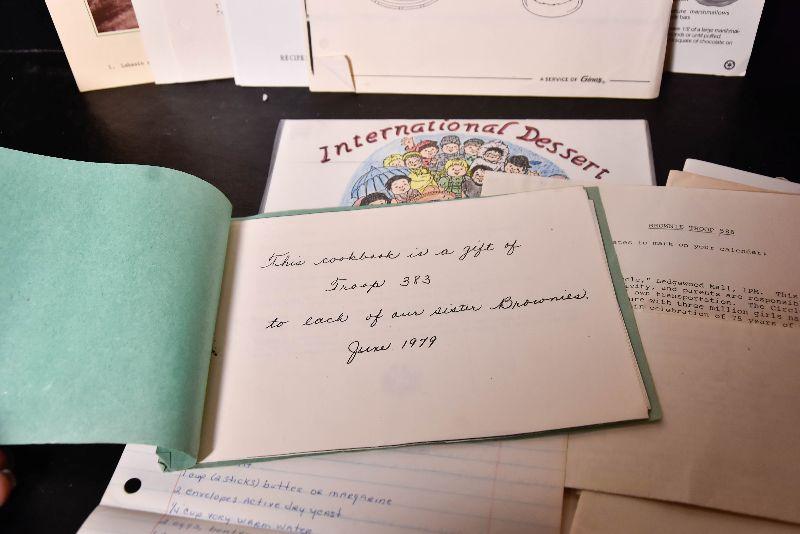 1. Lebanon
RECIPE
A SERVICE OF Gems
marshmallows
bars
1/2 of a large marshmal-
or until puffed.
square of chocolate on
International Dessert
This cookbook is a gift of
Troop 383
to each of our sister Brownies.
June 1979
BROWNIE TROOP 386
to mark on your calendar:
Ledgewood Mall, 1PM. This
and parents are responsib
own transportation. The Circl
with three million girls
in celebration of 75 years of
1 cup (2 sticks) butter or margarine
2 envelopes active dry yeast
1/4 cup very warm water
2 eggs,